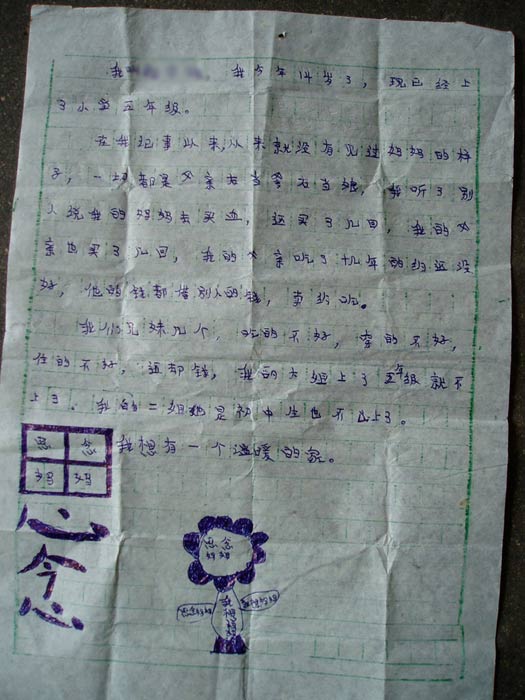 我 我今年14岁了，现已经上
了小学五年级。
在我记事以来，从来就没有见过妈妈的样
子，一切都是父亲右当爹右当娘，我听了别
人说我的妈妈去买血，还买了几回，我的父
亲也买了几回，我的父亲吃了十几年的药还没
好，他的钱都借别人的钱，卖药吃。
我们兄妹几个，吃的不好，穿的不好，
住的不好，还却钱，我的大姐上了五年级就不
上了。我的二姐她是初中生也不上了。
我想有一个温暖的家。
思念
妈妈
心今心
思念
妈妈